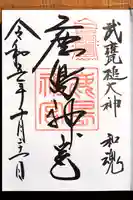 武甕槌大神 和魂
鹿島神宮
令和五年十月三十一日